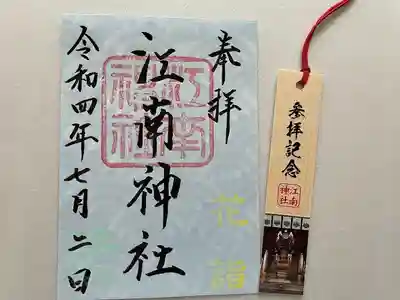 奉拝
江南神社
江南神社
令和四年七月二日
花詣
参拝記念
江南神社